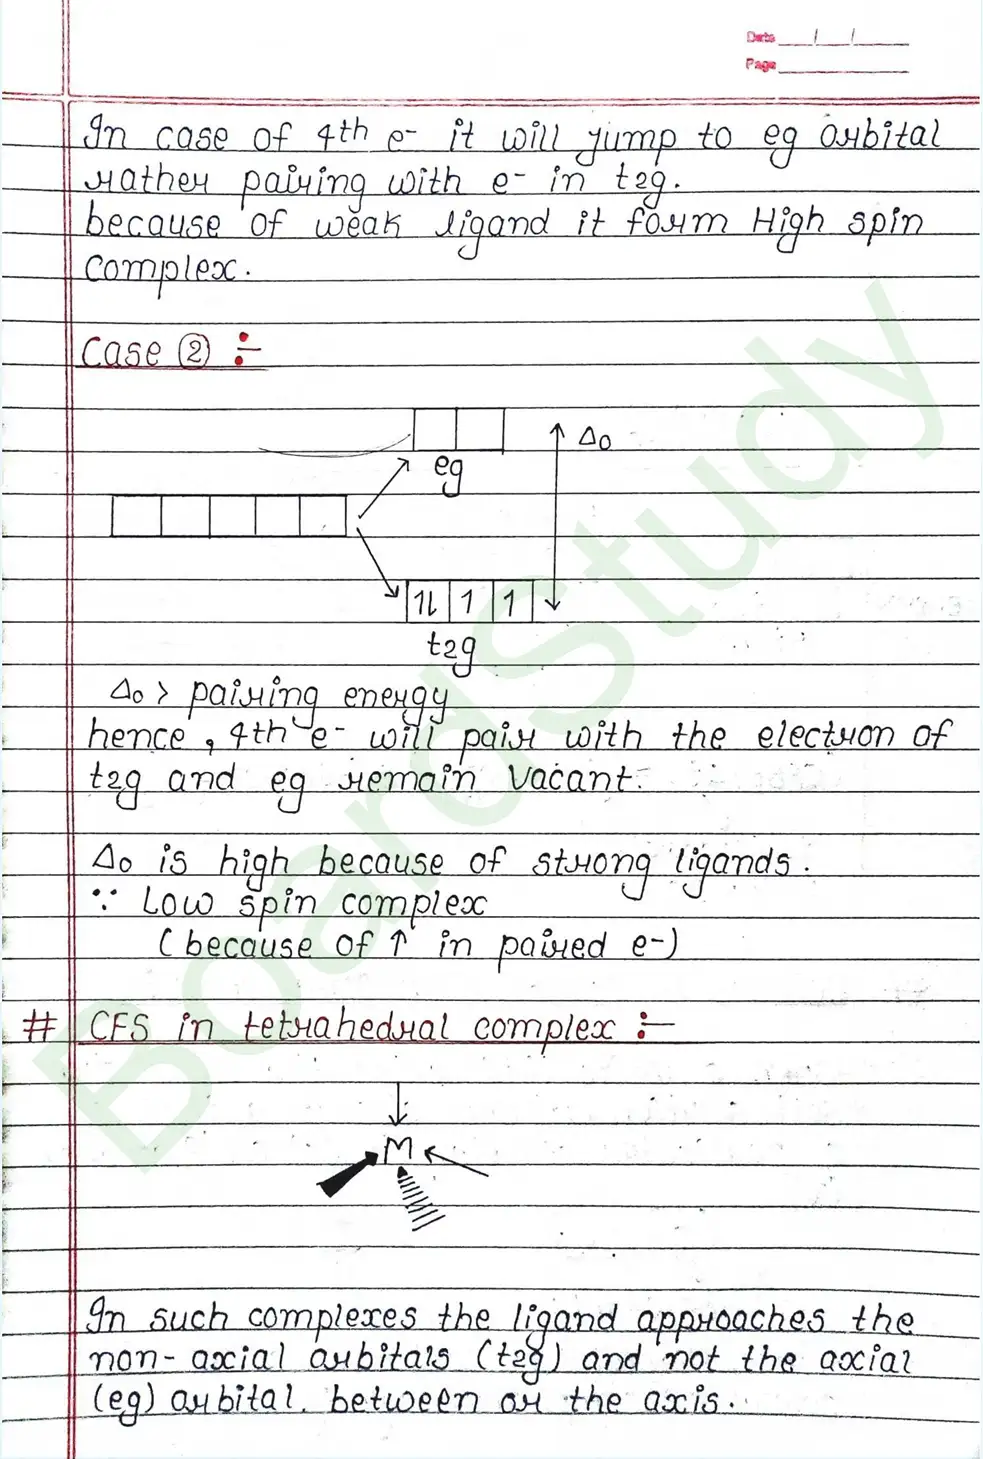 Date / /
Page
In case of 4th e- it will jump to eg orbital
rather pairing with e- in t2g.
because of weak ligand it form High spin
complex.
Case ② :-
Δo
eg
1l 1 1
t2g
Δo > pairing energy
hence, 4th e- will pair with the electron of
t2g and eg remain vacant.
Δo is high because of strong ligands.
∵ Low spin complex
(because of ↑ in paired e-)
# CFS in tetrahedral complex :-
M
In such complexes the ligand approaches the
non-axial orbitals (t2g) and not the axial
(eg) orbital. between or the axis.
BoardStudy